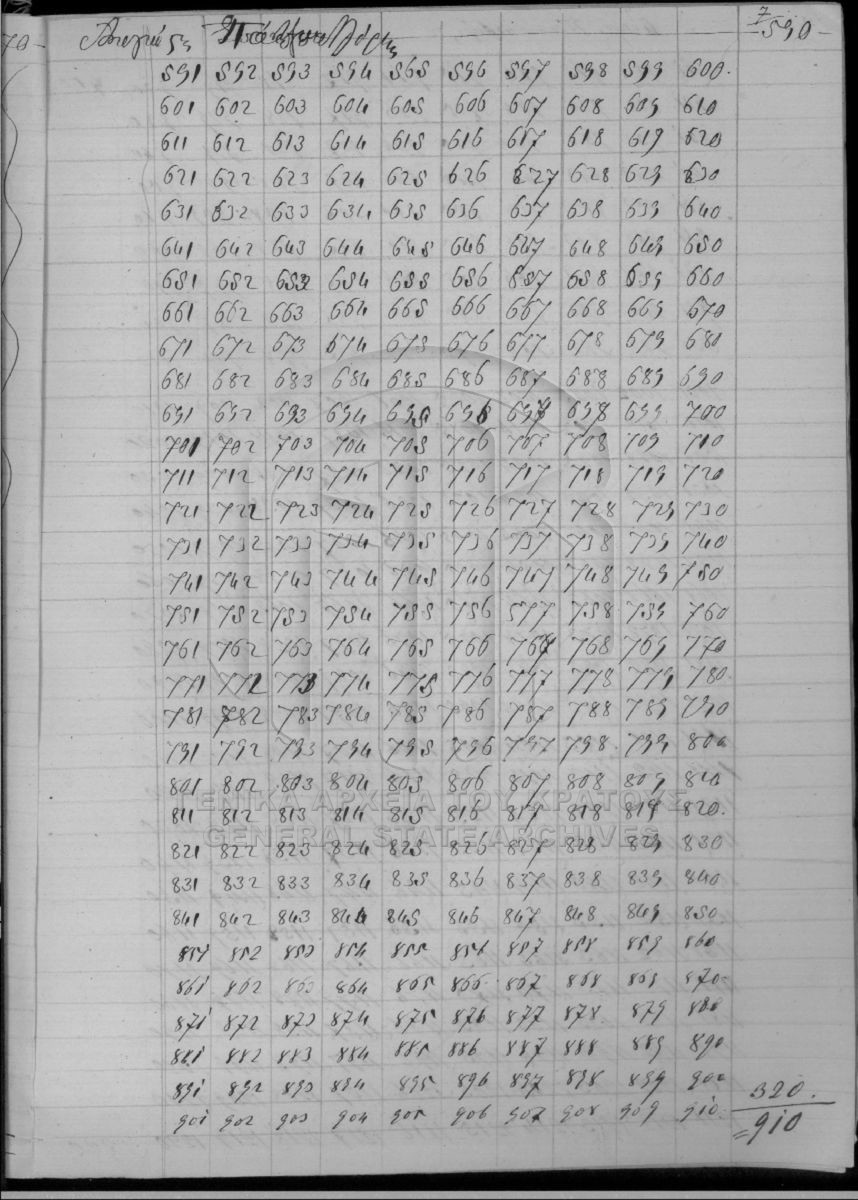 70-
7
590-
591 592 593 594 565 596 597 598 599 600.
601 602 603 604 605 606 607 608 609 610
611 612 613 614 615 616 617 618 619 620
621 622 623 624 625 626 627 628 629 630
631 632 633 634 635 636 637 638 639 640
641 642 643 644 645 646 647 648 649 650
651 652 653 654 655 656 657 658 659 660
661 662 663 664 665 666 667 668 669 670
671 672 673 674 675 676 677 678 679 680
681 682 683 684 685 686 687 688 689 690
691 692 693 694 695 696 697 698 699 700
701 702 703 704 705 706 707 708 709 710
711 712 713 714 715 716 717 718 719 720
721 722 723 724 725 726 727 728 729 730
731 732 733 734 735 736 737 738 739 740
741 742 743 744 745 746 747 748 749 750
751 752 753 754 755 756 577 758 759 760
761 762 763 764 765 766 767 768 769 770
771 772 773 774 775 776 777 778 779 780
781 782 783 784 785 786 787 788 789 790
791 792 793 794 795 796 797 798 799 800
801 802 803 804 805 806 807 808 809 810
ΓΕΝΙΚΑ ΑΡΧΕΙΑ ΤΟΥ ΚΡΑΤΟΥΣ
811 812 813 814 815 816 817 818 819 820.
GENERAL STATE ARCHIVES
821 822 823 824 825 826 827 828 829 830
831 832 833 834 835 836 837 838 839 840
841 842 843 844 845 846 847 848 849 850
851 852 853 854 855 856 857 858 859 860
861 862 863 864 865 866 867 868 869 870
871 872 873 874 875 876 877 878 879 880
881 882 883 884 885 886 887 888 889 890
891 892 893 894 895 896 897 898 899 900
901 902 903 904 905 906 907 908 909 910
320.
=910